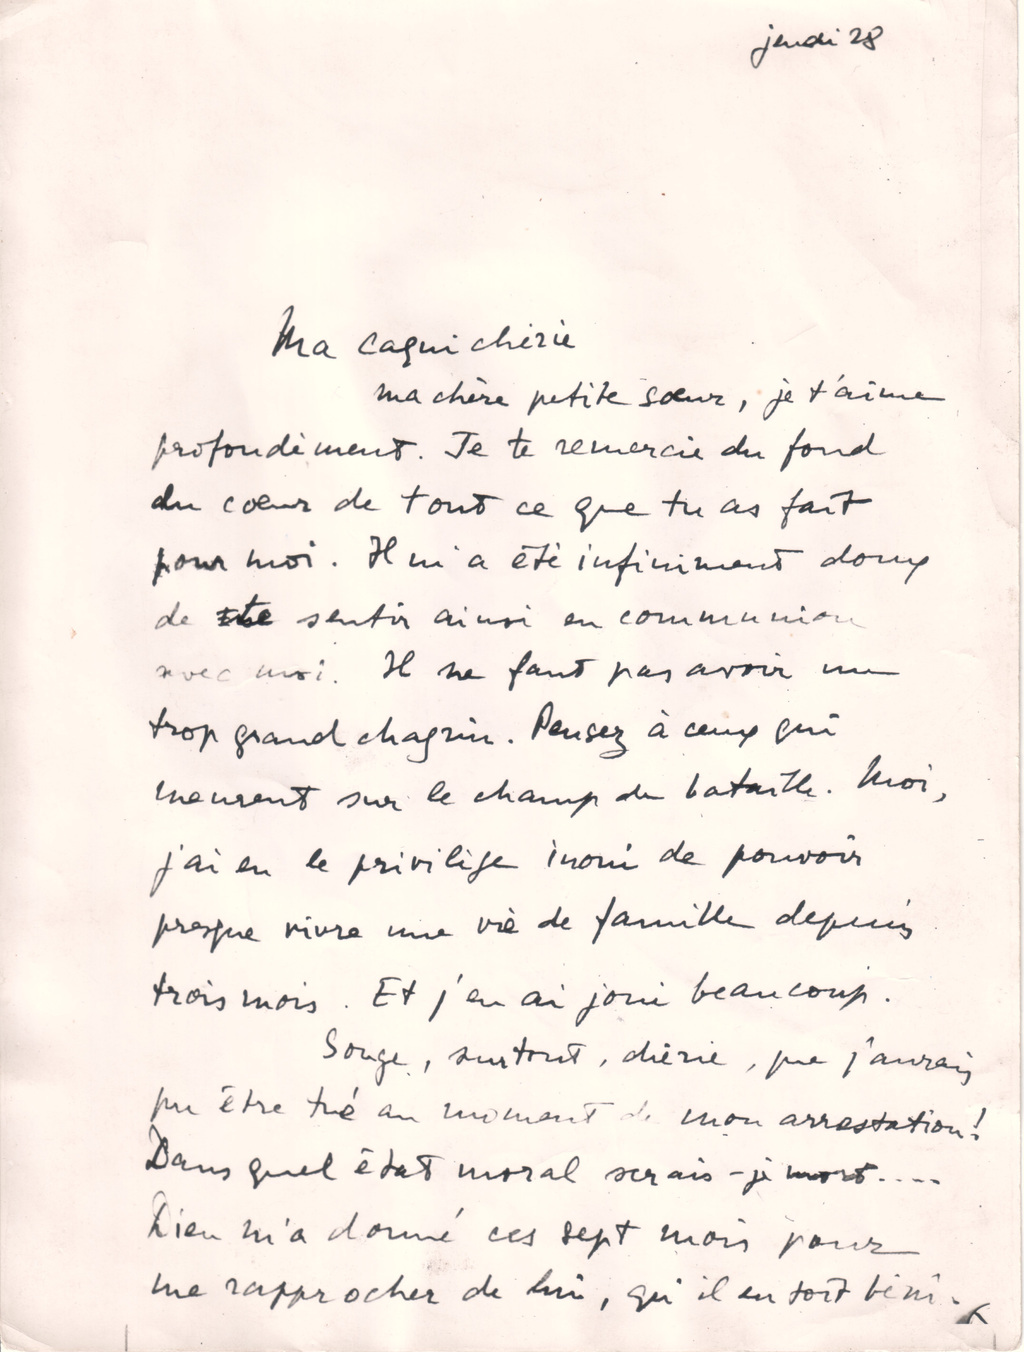 jeudi 28
Ma Caqui chérie
ma chère petite sœur, je t'aime
profondément. Je te remercie du fond
du cœur de tout ce que tu as fait
pour moi. Il m'a été infiniment doux
de te sentir ainsi en communion
avec moi. Il ne faut pas avoir un
trop grand chagrin. Pensez à ceux qui
meurent sur le champ de bataille. Moi,
j'ai eu le privilège inouï de pouvoir
presque vivre une vie de famille depuis
trois mois. Et j'en ai joui beaucoup.
Songe, surtout, chérie, que j'aurais
pu être tué au moment de mon arrestation!
Dans quel état moral serais-je mort....
Dieu m'a donné ces sept mois pour
me rapprocher de lui, qu'il en soit béni.